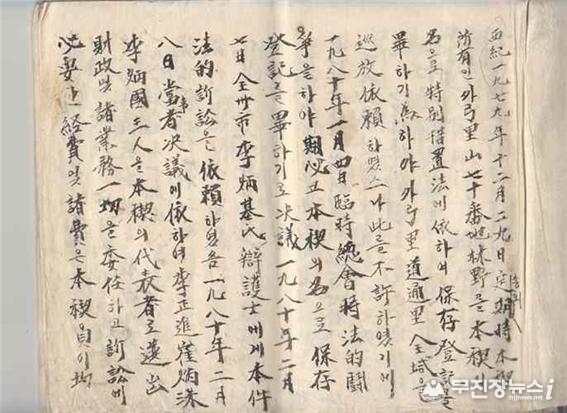 西紀一九七九年十二月二九日 定期総會時 本稧
所有인 外弓里 山七十番地 林野를 本稧
名으로 特別措置法에 依하여 保存登記를
畢하기 爲하야 外弓里 道通里 全域을
巡放 依賴하였으나 此를 不許하였기에
一九八十年一月四日 臨時總會時 法的鬪
爭을 하야 期必코 本稧의 名으로 保存
登記를 畢하기로 決議 一九八十年二月
七日 全州市 李炳基氏 辯護士에게 本件
法的 訴訟을 依賴하였음 一九八十年二月
八日 當事者 決議에 依하여 李正進 崔炳洙
李炳國 三人을 本稧의 代表者로 選出
財政 및 諸業務 一切을 委任하고 訴訟에
必要한 經費 및 諸費은 本稧員이
무진장뉴스